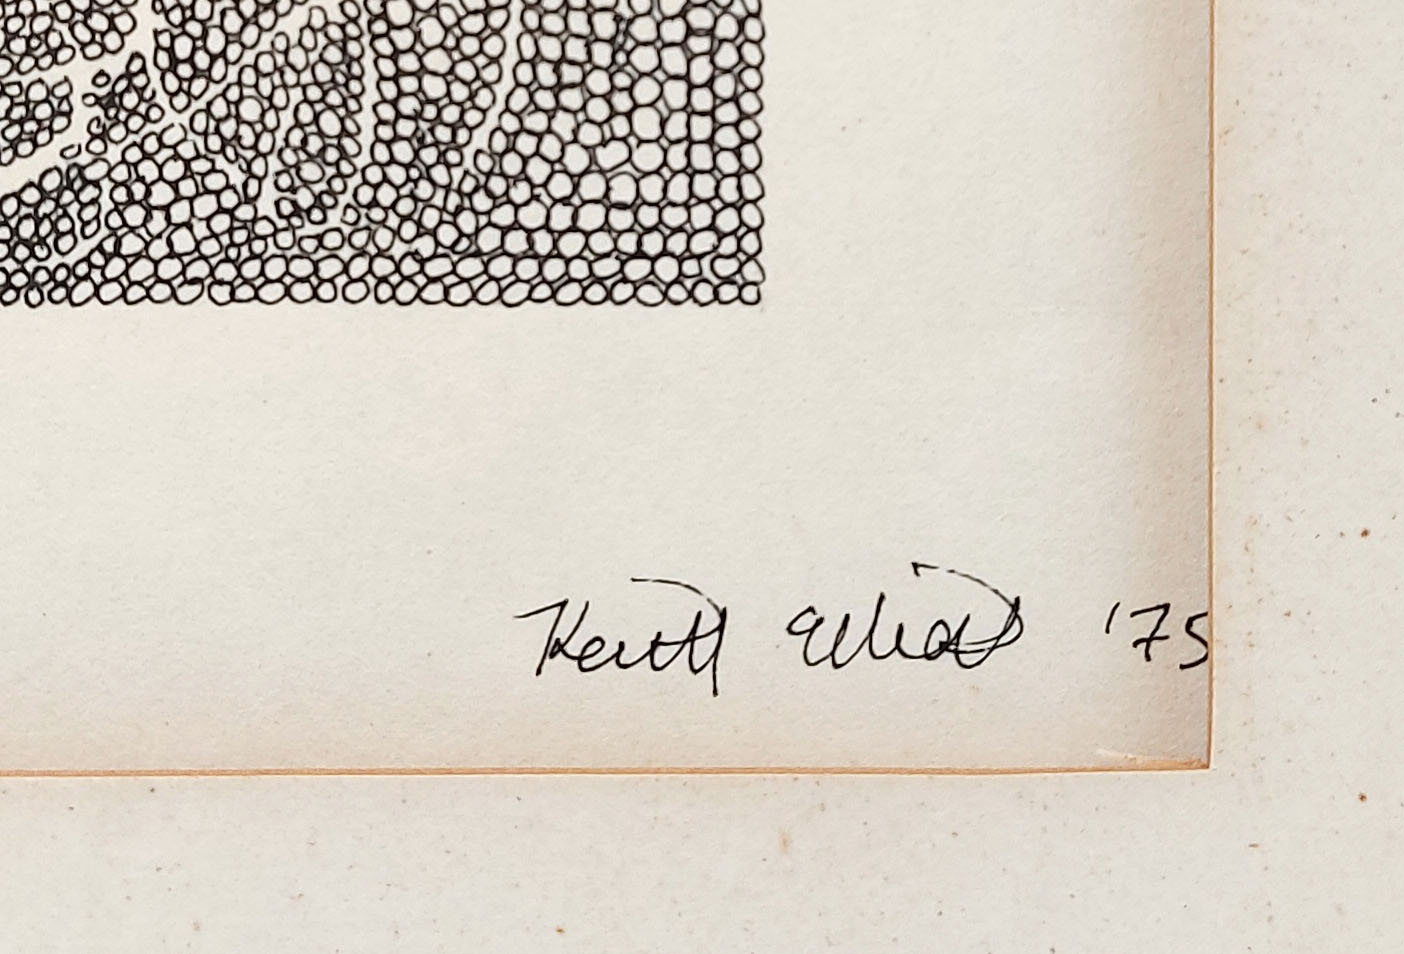 Keith Elliott '75